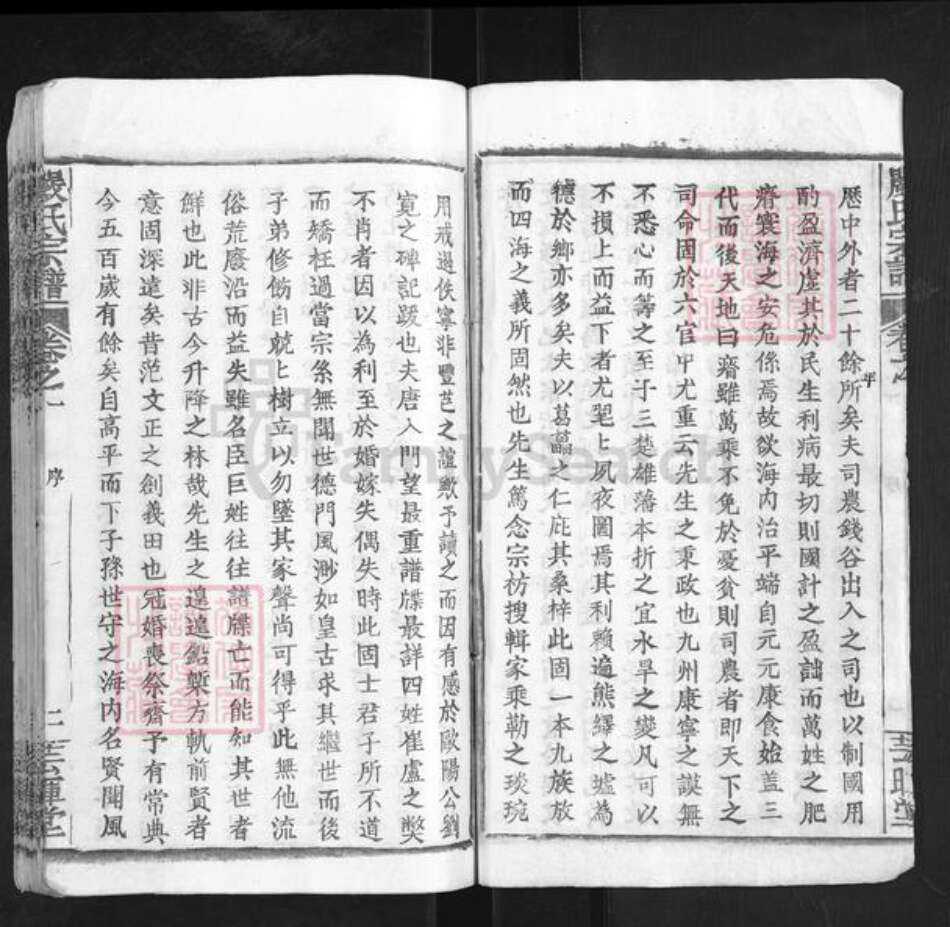 歷中外者二十餘所矣夫司農錢谷出入之司也以制國用
酌盈濟虛其於民生利病最切則國計之盈詘而萬姓之肥
瘠寰海之安危係焉故欲海內治平端自元元康食始蓋三
代而後天地曰瘠雖萬乘不免於憂貧則司農者即天下之
司命固於六官中尤重云先生之秉政也九州康寧之謨無
不悉心而籌之至于三楚雄藩本折之宜水旱之變凡可以
不損上而益下者尤毣上夙夜圖焉其利賴遍熊繹之墟為
德於鄉亦多矣夫以葛藟之仁庇其桑梓此固一本九族放
而四海之義所固然也先生篤念宗祊搜輯家乘勒之琰琬
用戒過佚寧非豐芑之誼歟予讀之而因有感於歐陽公劉
寬之碑記跋也夫唐人門望最重譜牒最詳四姓崔盧之獘
不肖者因以為利至於婚嫁失偶失時此固士君子所不道
而矯枉過當宗系無聞世德門風渺如皇古求其繼世而後
子弟修飭自兢上樹立以勿墜其家聲尚可得乎此無他流
俗荒廢沿而益失雖名臣巨姓往往譜牒亡而能知其世者
鮮也此非古今升降之林哉先生之遑遑鉛槧方軌前賢者
意固深遠矣昔范文正之創義田也冠婚喪祭齊予有常典
今五百歲有餘矣自高平而下子孫世守之海內名賢聞風
嚴氏宗譜
卷之一
序
二
FamilySearch